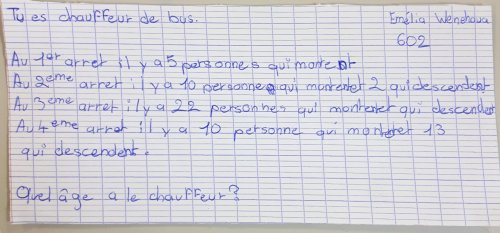 Tu es chauffeur de bus. Emélia Wenehoua
602
Au 1er arret il y a 5 personnes qui montent
Au 2eme arret il y a 10 personnes qui montentet 2 qui descendent
Au 3eme arret il y a 22 personnes qui montentet qui descendent
Au 4eme arret il y a 10 personne qui montentet 13
qui descendent.
Quel âge a le chauffeur?